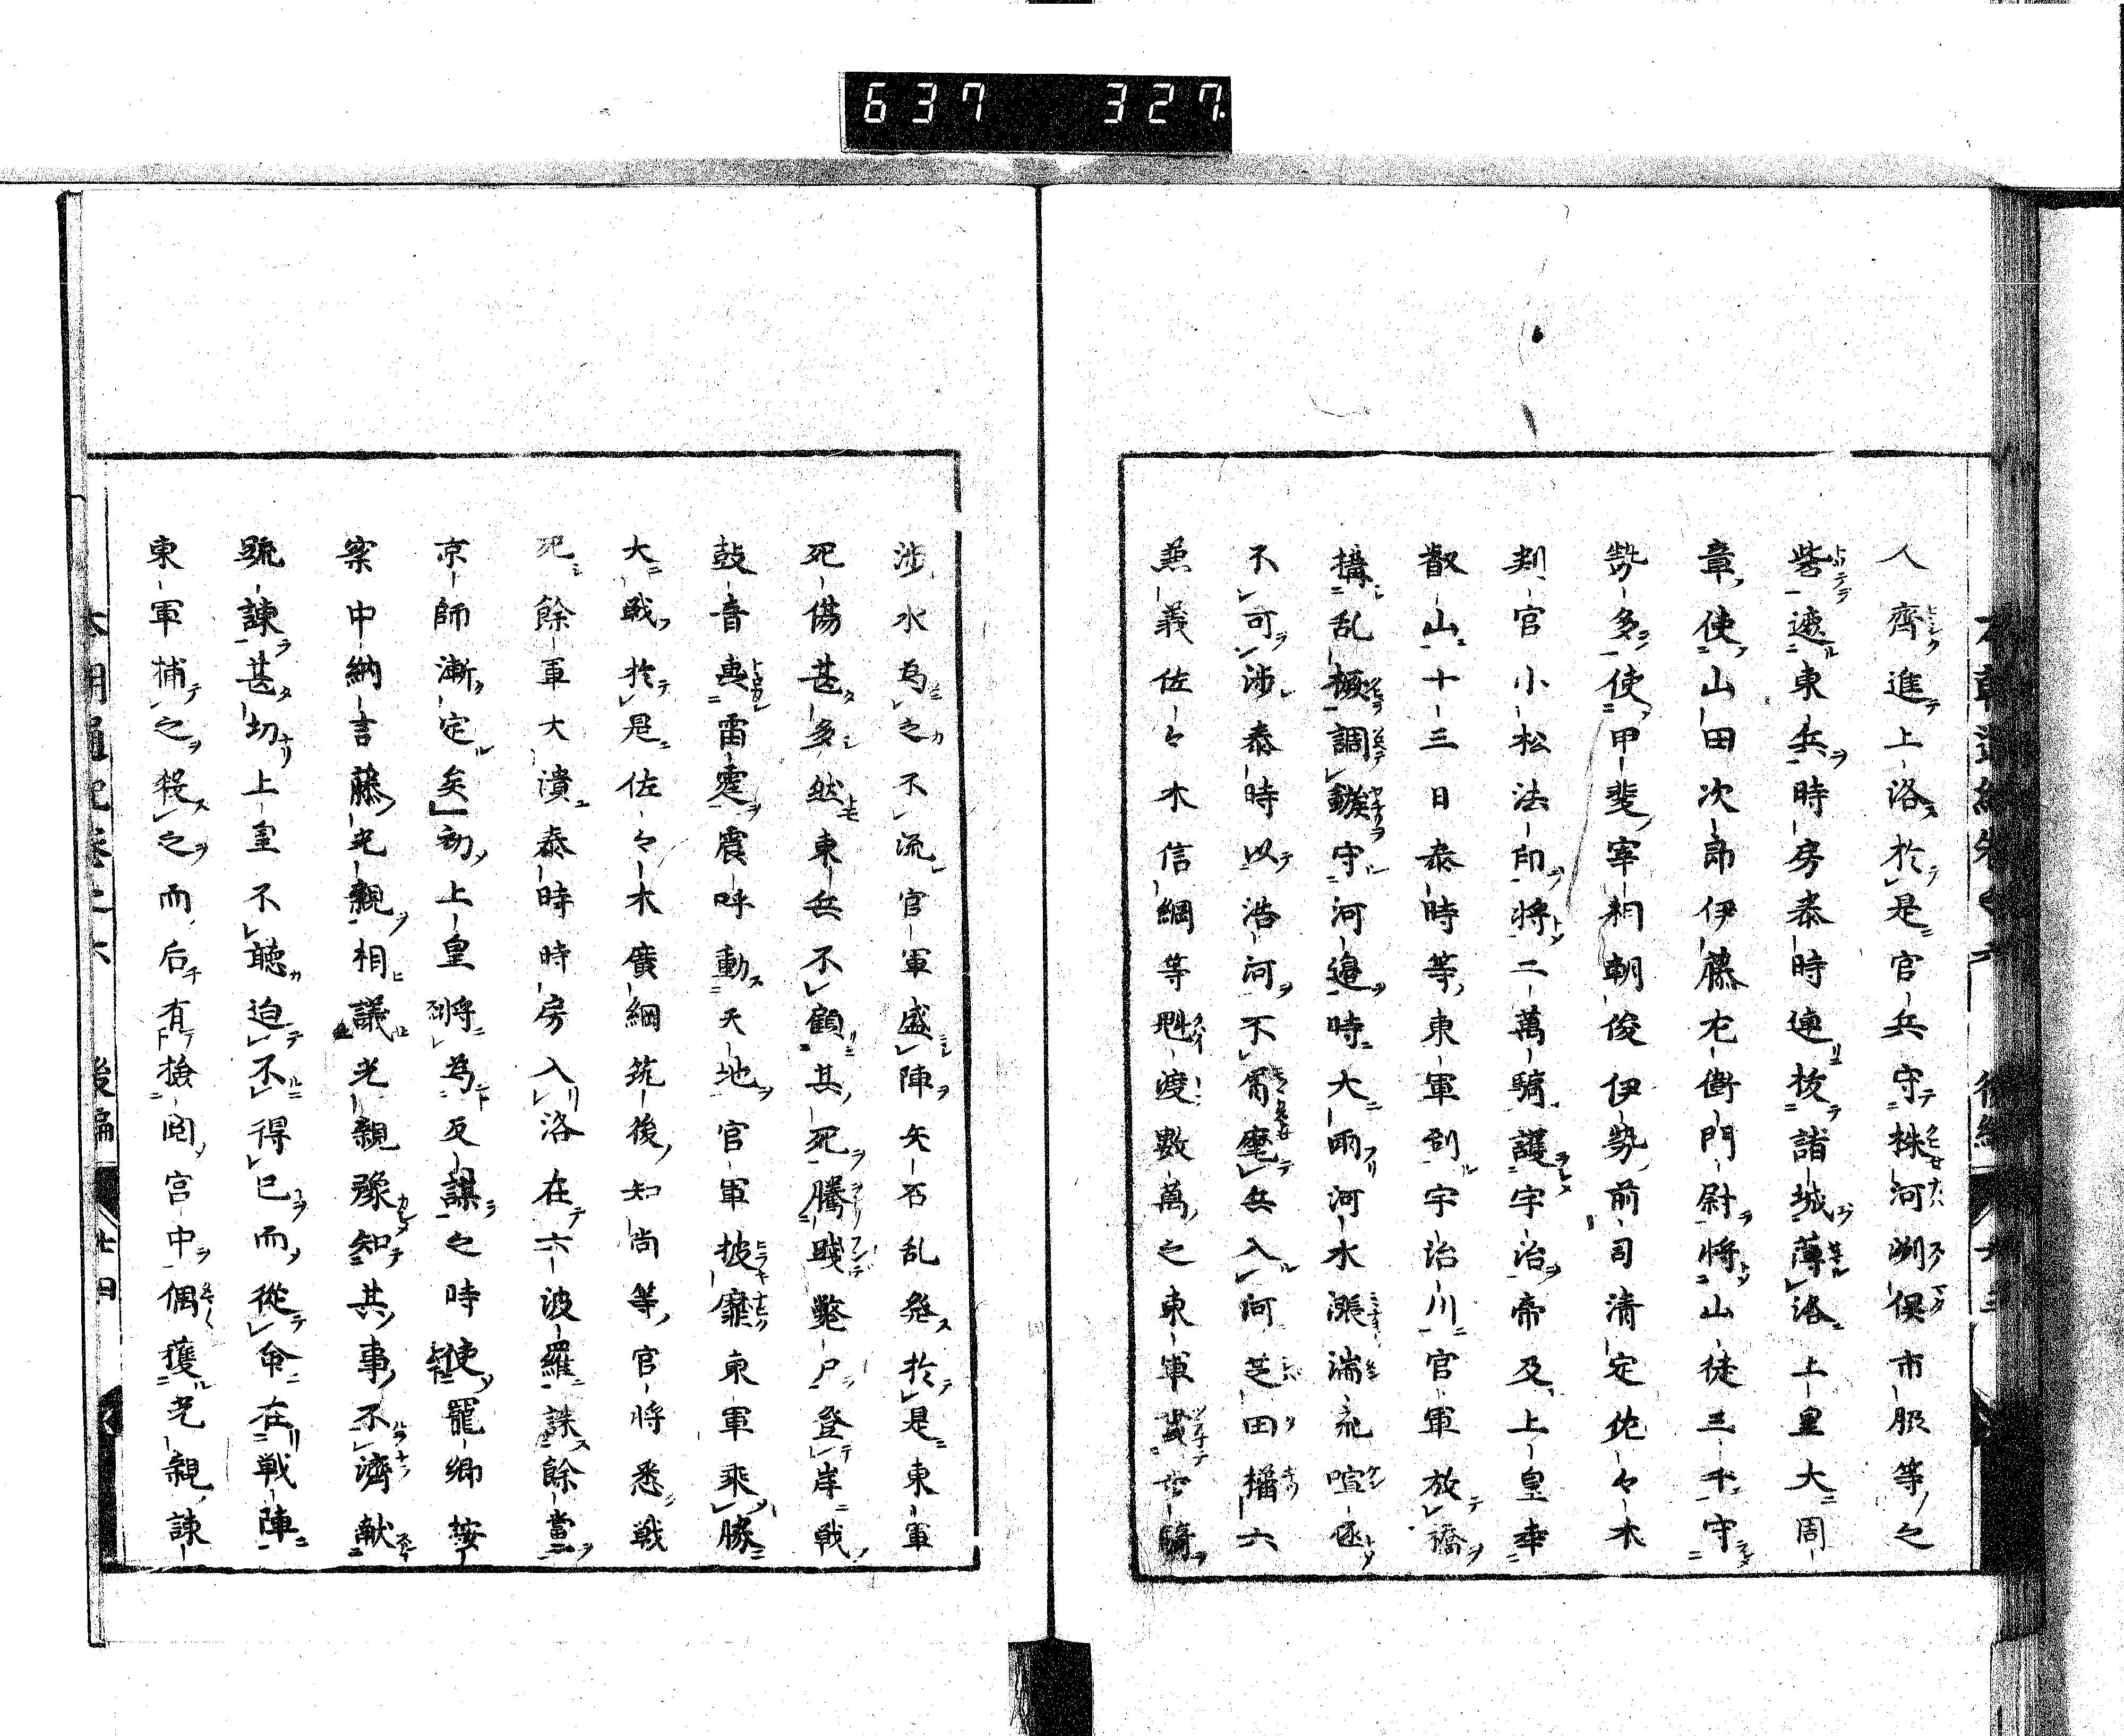 637 327
人齊進上洛於是官兵守株河洲俣市服等之
砦遮東兵時房泰時連拔諸城薄洛上皇大周
章使山田次郎伊藤左衛門尉將山徒三千守
勢多使甲斐宰相朝俊伊勢前司清定佐々木
判官小松法印將二萬騎護宇治帝及上皇幸
叡山十三日泰時等東軍到宇治川官軍放橋
搆乱橛調鏃守河邊時大雨河水漲湍流喧豗
不可涉泰時以浩河不胥麾兵入河芝田橘六
兼義佐々木信綱等魁渡數萬之東軍貳世騎
涉水為之不流官軍盛陣矢石乱發於是東軍
死傷甚多然東兵不顧其死騰踐斃尸登岸戰
鼓音輿雷霆震呼動天地官軍披靡東軍乘勝
大戰於是佐々木廣綱筑後知尚等官將悉戰
死餘軍大潰泰時時房入洛在六波羅誅餘黨
京師漸定矣初上皇將為及謀之時使罷卿按
察中納言藤光親相議光親豫知其事不濟献
䟽諫甚切上皇不聽迫不得已而從命在戰陣
東軍捕之殺之而后有撿閲宮中偶獲光親諫
本朝通紀卷之六 後編 廿四